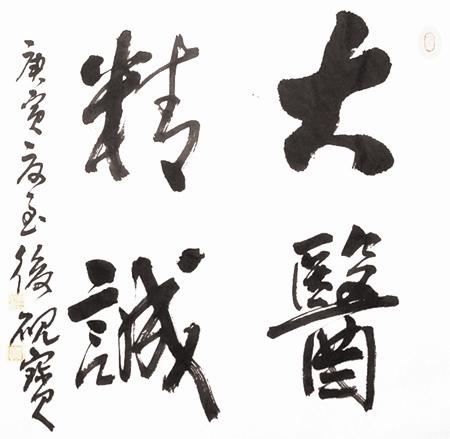 大醫
精誠
庚寅夏至後硯寶